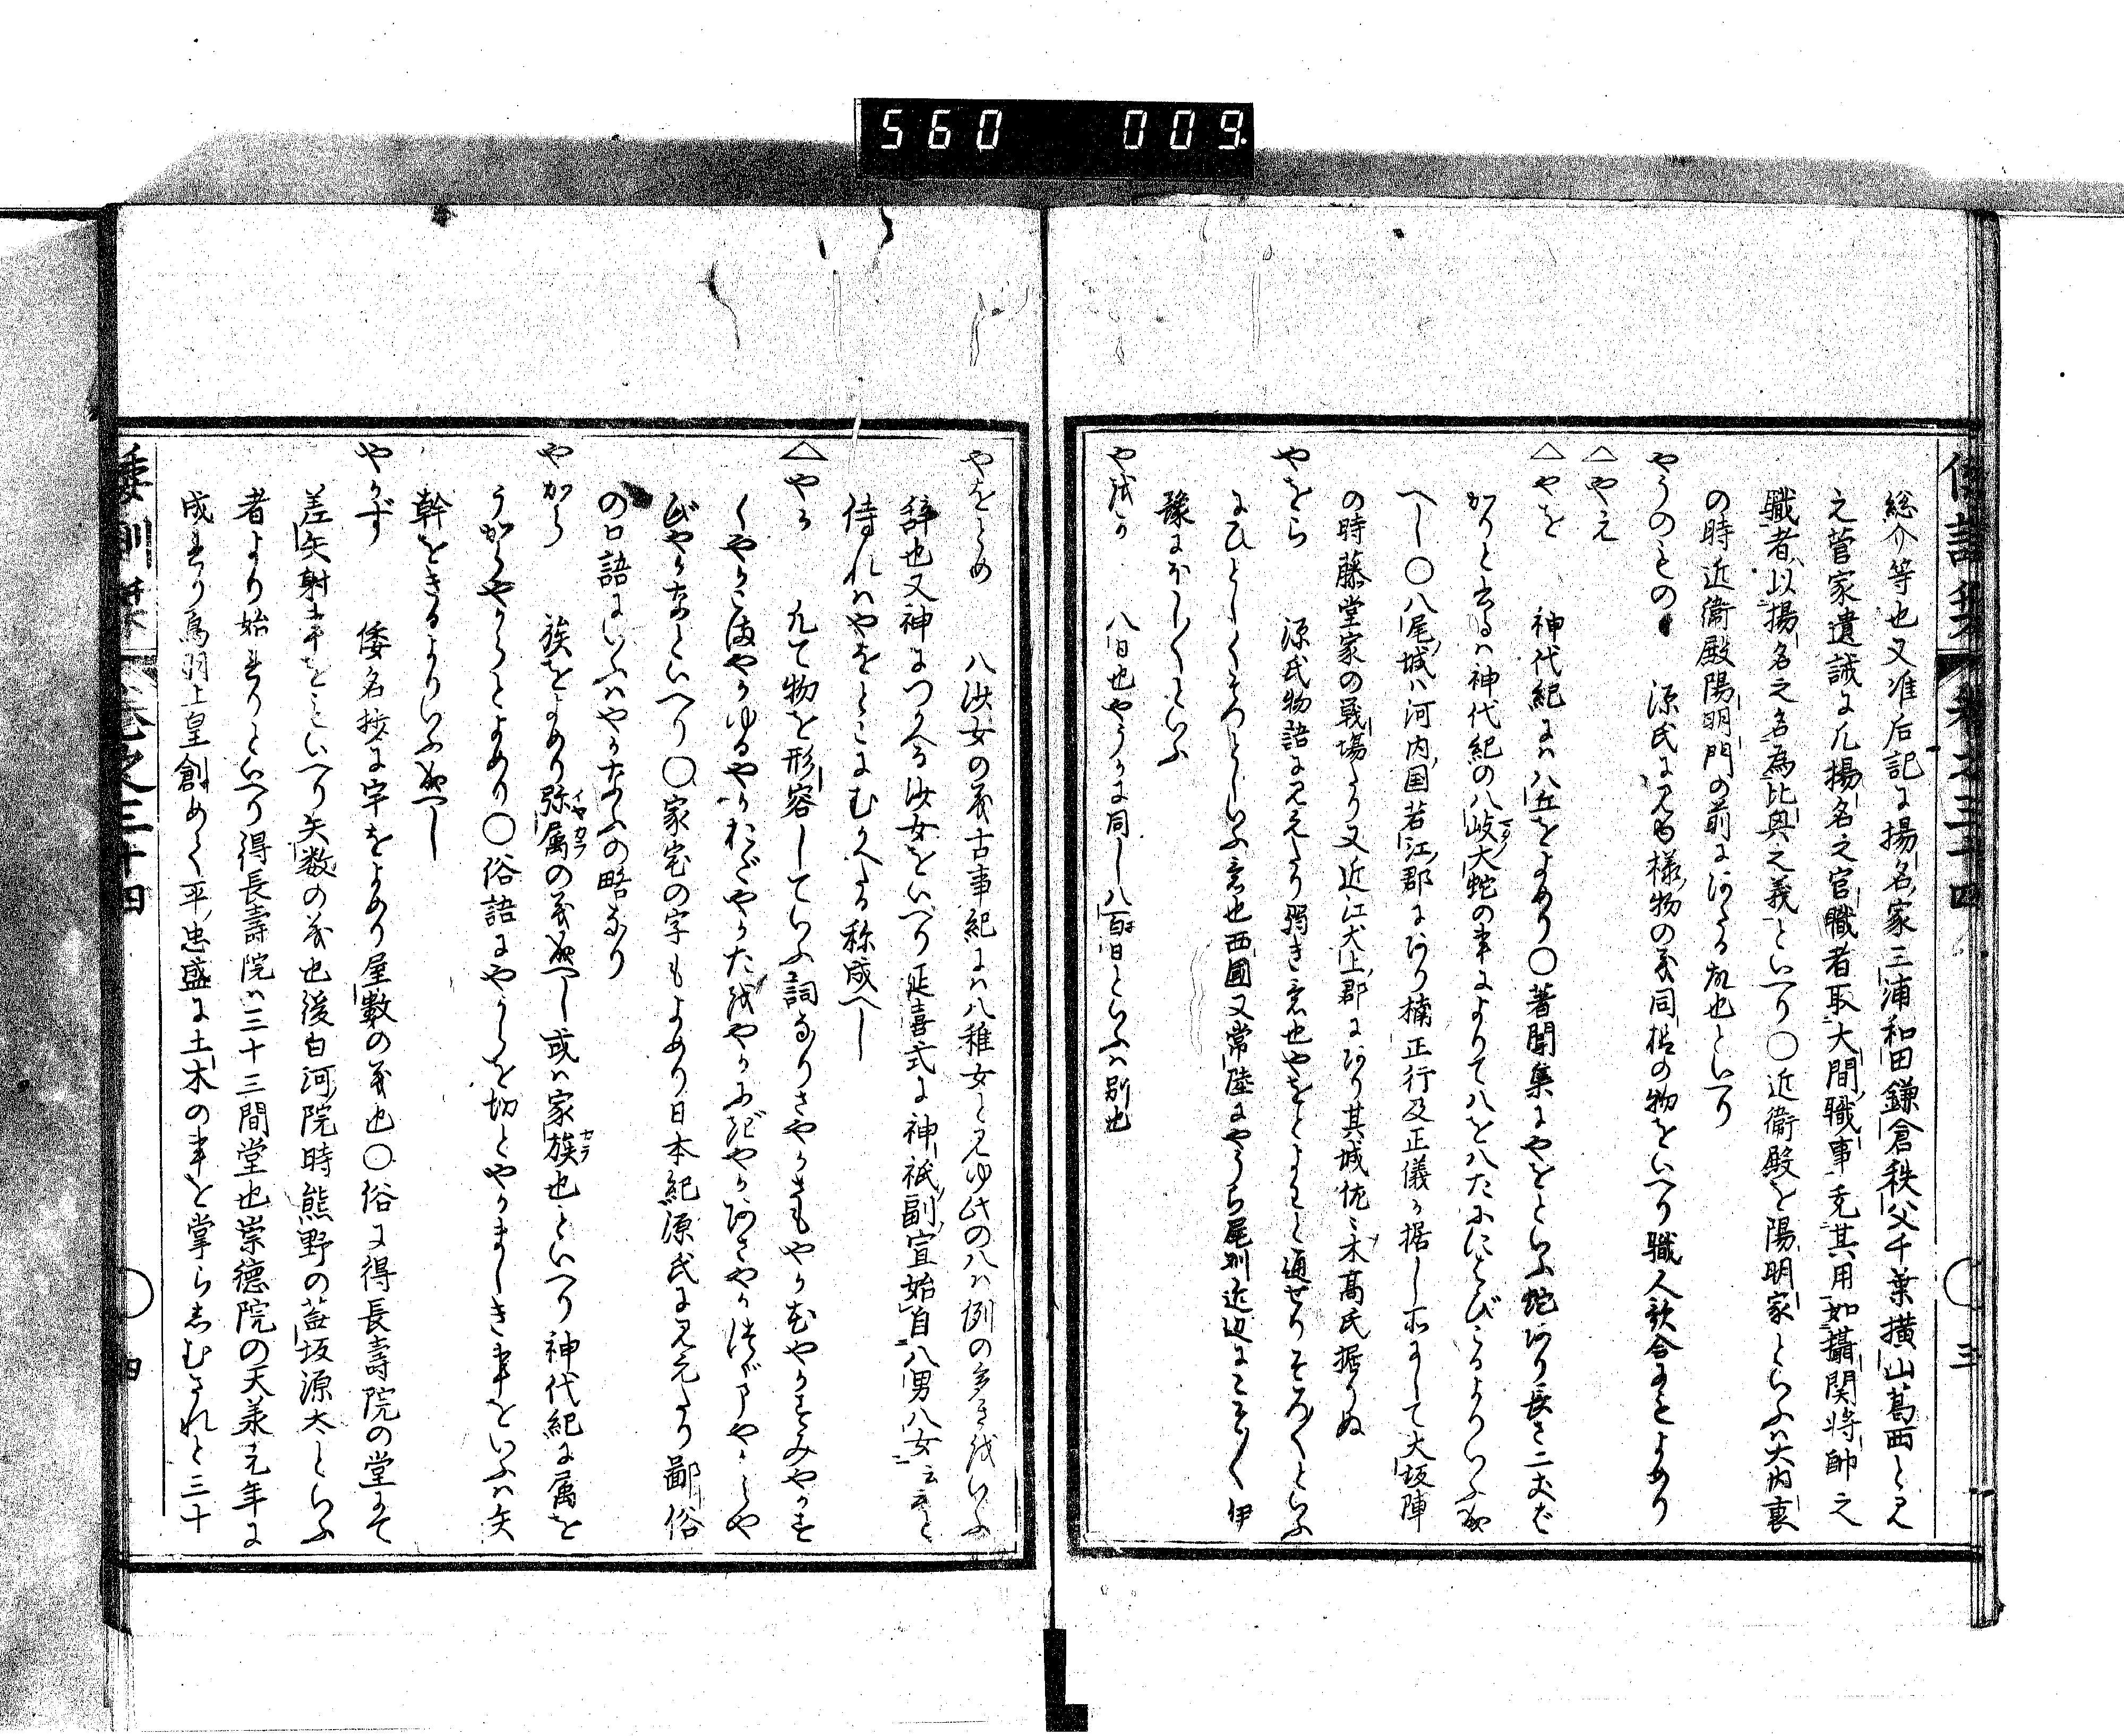 560 009
総介等也又准后記に揚名家三浦和田鎌倉秩父千葉横山葛西と見
之菅家遺誡に凡揚名之官職者取大間職事充其用如攝関将帥之
職者以揚名之名為比興之義といへり〇近衛殿を陽明家といふハ大内裏
の時近衛殿陽明門の前にある故也といへり
やうのもの 源氏に見ゆ様物の義同根の物をいへり職人歌合にもよめり
△やえ
△やを 神代紀にハ八丘をよめり〇著聞集にやをといふ蛇あり長さ二丈ば
かりと云るハ神代紀の八岐大蛇の事によりて八を八たにに とびこるよりいふ成
へし〇八尾城ハ河内国若江郡にあり楠正行及正儀か据し所にして大坂陣
の時藤堂家の戦場たり又近江犬上郡にあり其城佐々木高氏据りぬ
やをら 源氏物語に見えたり弱き意也やをとよわと通せりそろ〳〵といふ
にひとしくそつとといふ意也西國又常陸にやうら尾州近辺にこそ〳〵伊
豫にほし〳〵といふ
や越か 八日也やうかに同し八百日といふハ別也
倭訓栞 巻之三十四 〇三
やをとめ 八沙女の義古事紀にハ八稚女と見ゆ此の八ハ例の多き越いふ
辞也又神につかへる沙女をいへり延喜式に神祇副宣始自八男八女云云と
侍れハやをとこにむかへる称成へし
△やか 凡て物を形容していふ詞なりさやかきもやかむやかすみやかを
くやかこまやかゆるやかおだやかた越やかにぎやかあざやかつばらやかしや
びやかなといへり〇家宅の字もよめり日本紀源氏に見えたり鄙俗
の口語にいふハやかなふの略なり
やから 族をよめり弥属の義成へし或ハ家族也といへり神代紀に属を
うからやからとよめり〇俗語にやからを切とやかましき事をいふハ矢
幹をきるよりいふ成へし
やかず 倭名抄に宇をよめり屋数の義也〇俗に得長壽院の堂にて
差矢射事をもいへり矢数の義也後白河院時熊野の蓝坂源太といふ
者より始まりといへり得長壽院ハ三十三間堂也崇徳院の天承元年に
成まり鳥羽上皇創めて平忠盛に土木の事を掌らしむされと三十
倭訓栞 巻之三十四 〇四